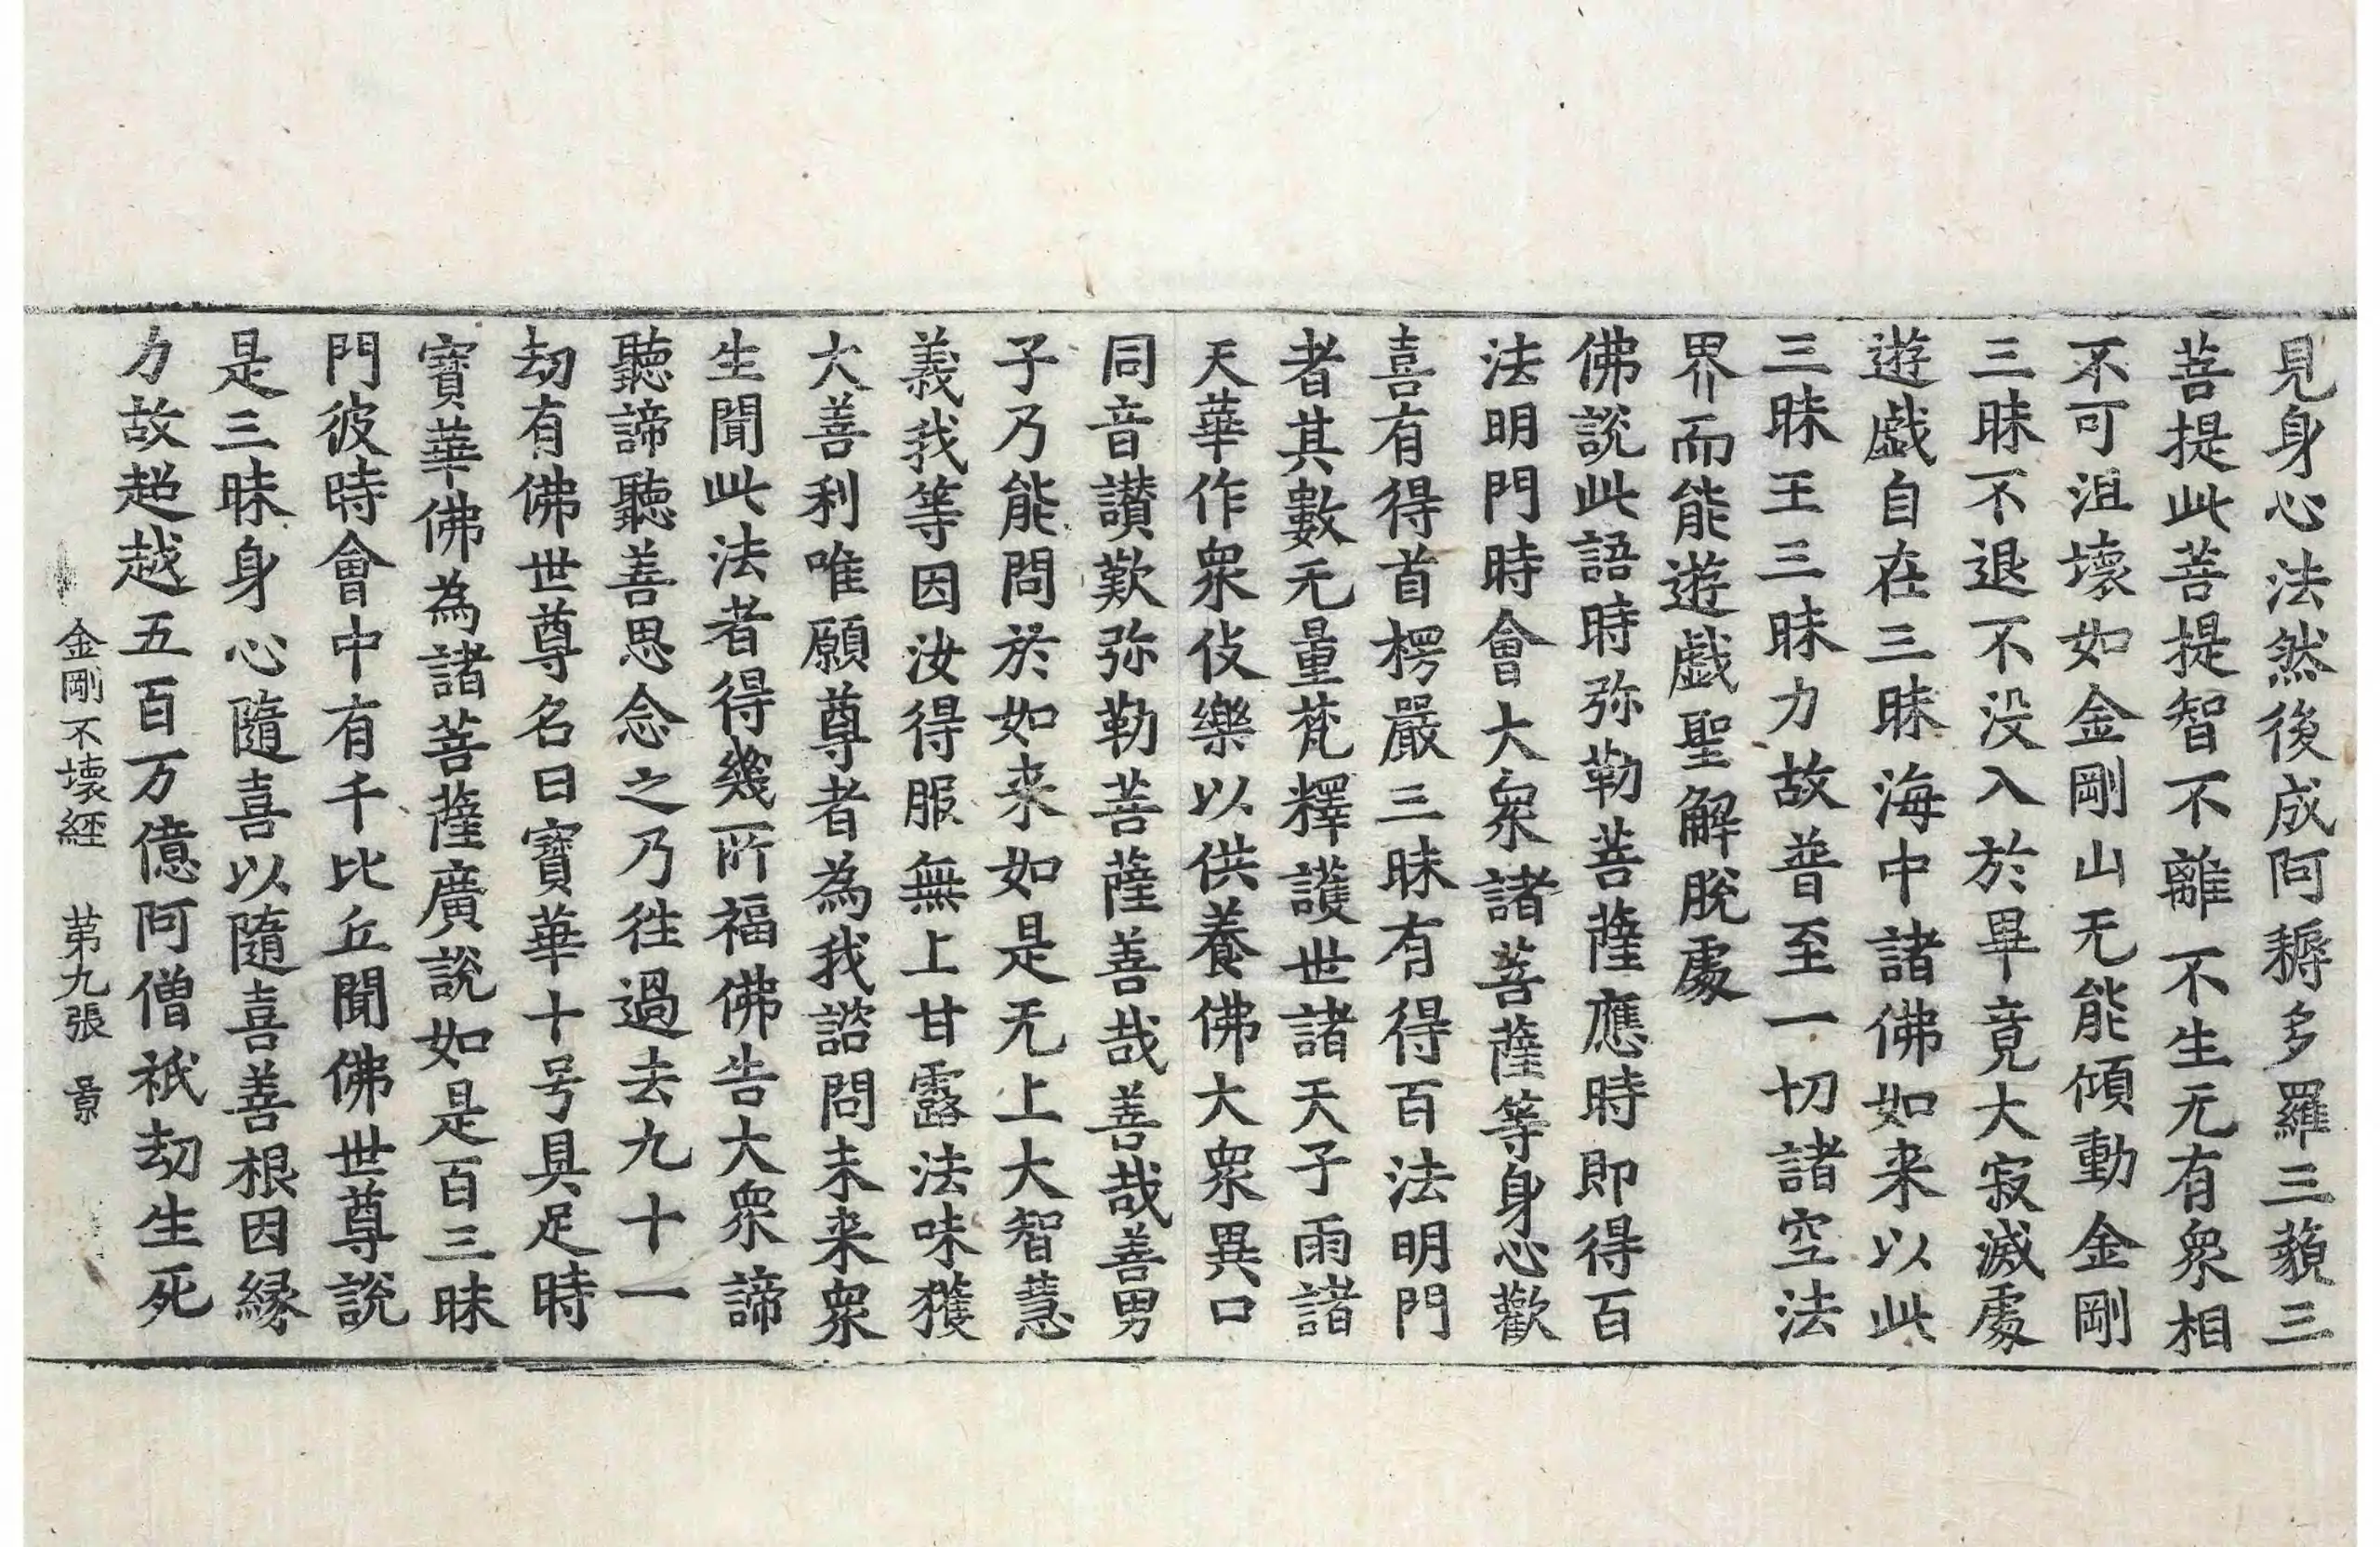 見身心法然後成阿耨多羅三藐三
菩提此菩提智不離不生无有衆相
不可沮壞如金剛山无能傾動金剛
三昧不退不没入於畢竟大寂滅處
遊戲自在三昧海中諸佛如来以此
三昧王三昧力故普至一切諸空法
界而能遊戲聖解脫處
佛說此語時弥勒菩薩應時即得百
法明門時會大衆諸菩薩等身心歡
喜有得首楞嚴三昧有得百法明門
者其數无量梵釋護世諸天子雨諸
天華作衆伎樂以供養佛大衆異口
同音讃歎弥勒菩薩善哉善哉善男
子乃能問於如来如是无上大智慧
義我等因汝得服無上甘露法味獲
大善利唯願尊者為我諮問未来衆
生聞此法者得幾所福佛告大衆諦
聽諦聽善思念之乃徃過去九十一
劫有佛世尊名曰寳華十号具足時
寳華佛為諸菩薩廣說如是百三昧
門彼時會中有千比丘聞佛世尊說
是三昧身心隨喜以隨喜善根因縁
力故超越五百万億阿僧祇劫生死
金剛不壞経 苐九張 景